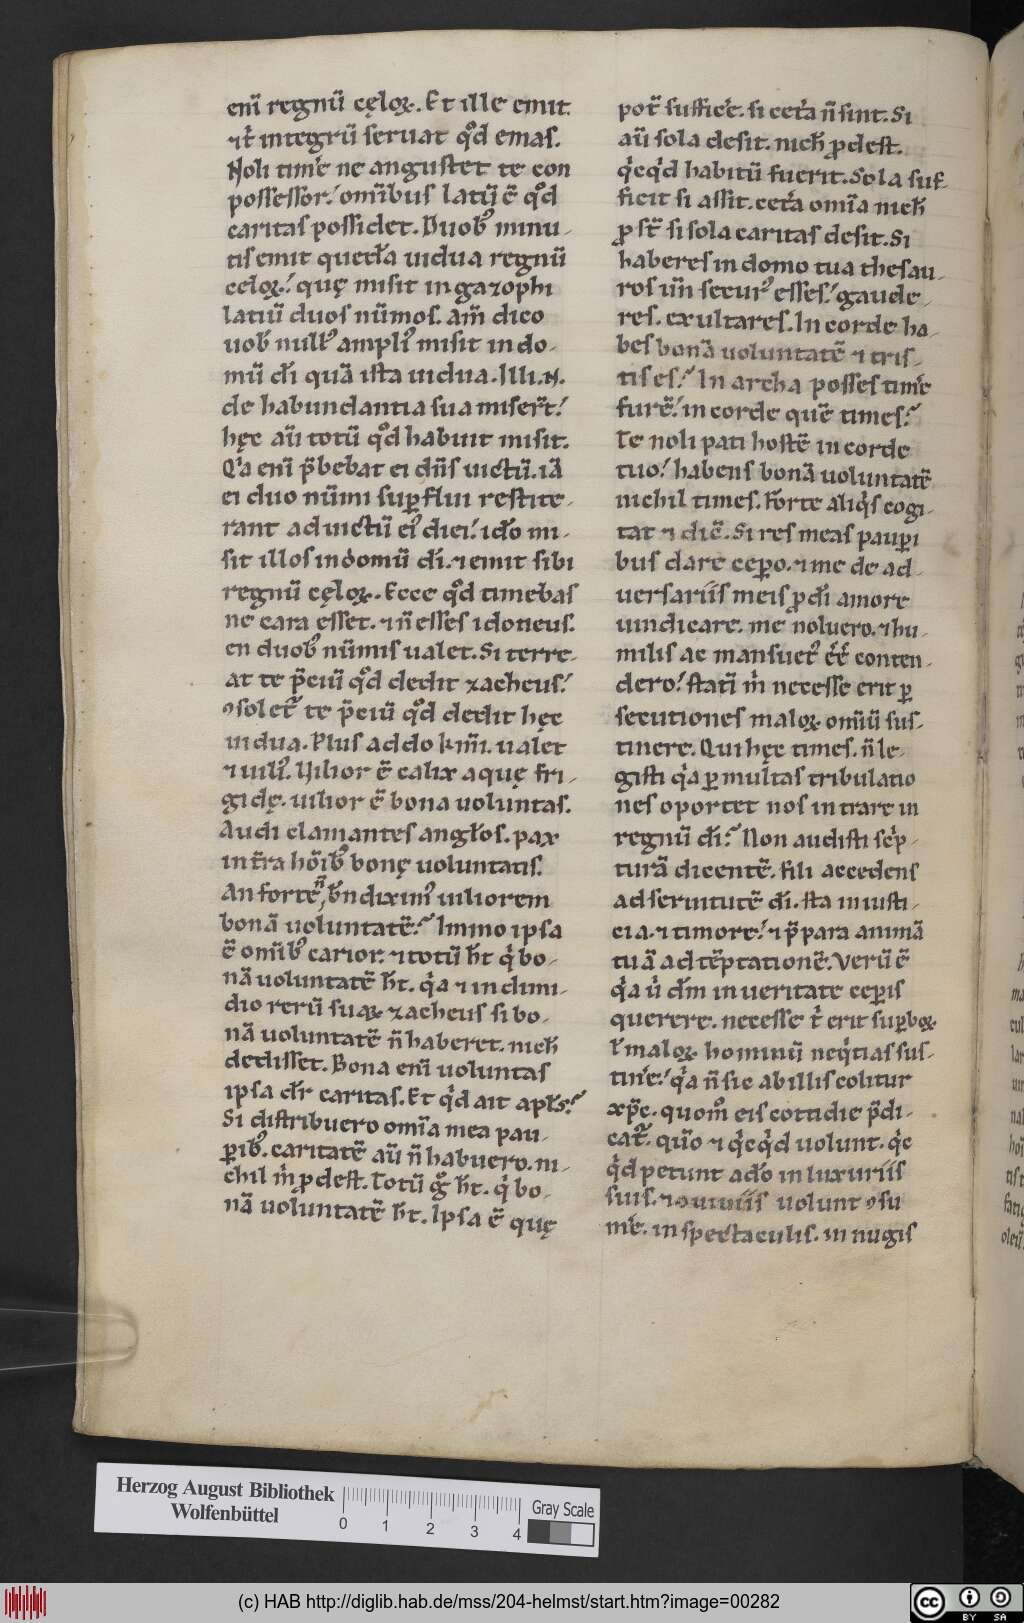 enī regnū cęloꝝ. Et ille emit.
⁊ t̄ integrū seruat qd̓ emas.
Noli timẻ ne angustet te con
possessor.ʼ omībus latū ē qd̓
caritas possidet. Duob᷒ minu-
tis emit quedā uidua regnū
cęloꝝ.ʼ quę misit in gazophi
latiū duos nūmos. am̄ dico
uob̄ null᷒ ampli᷒ misit in do-
mū dī quā ista uidua. Illi .N.
de habundantia sua miser̄t.ʼ
hęc aū totū qd̓ habuit misit.
Q̓a enī p̄bebat ei dn̄s uictū. iā
ei duo nūmi suꝑflui restite-
rant ad uictū ei᷒ diei.ʼ ido̓ mi-
sit illos in domū dī. ⁊ emit sibi
regnū cęloꝝ. Ecce qd̓ timebas
ne cara esset. ⁊ n̄ esses idoneus.
en duob᷒ nūmis ualet. Si terre-
at te p̄ciū qd̓ dedit zacheus.ʼ
ꝯsolet᷑ te p̄ciū qd̓ dedit hęc
uidua. Plus addo km̄i. ualet
⁊ uili᷒. Uilior ē calix aquę fri-
gidę. uilior ē bona uoluntas.
Audi clamantes angl̓os. pax
in t̄ra hōib᷒ bonę uoluntatis.
An forte n̄ bn̄ dixim᷒ uiliorem
bonā uoluntatē.ʼ Immo ipsa
ē omīb᷒ carior. ⁊ totū h̄t q̓ bo-
nā uoluntatē h̄t. q̓a ⁊ in dimi-
dio rerū suaꝝ zacheus si bo-
nā uoluntatē n̄ haberet. nich̄
dedisset. Bona enī uoluntas
ipsa dr̄ caritas. Et q̓d ait apl̄s.ʼ
Si distribuero omīa mea pau-
ꝑib᷒. caritatē aū n̄ habuero. ni-
chil m̓ ꝓdest. Totū g̊ h̄t. q̓ bo-
nā uoluntatē h̄t. Ipsa ē quę
pot̄ sufficẻ. si cet̓a n̄ sint. Si
aū sola desit. nich̄ ꝓdest.
q̓cq̓d habitū fuerit. Sola suf
ficit si assit. cet̓a omīa nich̄
ꝓst̄ si sola caritas desit. Si
haberes in domo tua thesau-
ros un̄ secur᷒ esses.ʼ gaude-
res. exultares. In corde ha-
bes bonā uoluntatē ⁊ tris-
tis es.ʼ In archa posses timẻ
furē.ʼ in corde quē times.ʼ
Te noli pati hostē in corde
tuo.ʼ habens bonā uoluntatē
nichil times. Forte aliq̓s cogi-
tat ⁊ dic̄. Si res meas pauꝑi
bus dare cepo. ⁊ me de ad-
uersariis meis ꝓ dī amore
uindicare. me noluero. ⁊ hu-
milis ac mansuet᷒ ēē conten-
dero.ʼ statī m̓ necesse erit ꝑ
secutiones maloꝝ omiū sus-
tinere. Qui hęc times. n̄ le-
gisti q̓a ꝑ multas tribulatio
nes oportet nos intrare in
regnū dī.ʼ Non audisti sc̓p-
turā dicentē. fili accedens
ad seruitutē dī. sta in iusti-
cia. ⁊ timore.ʼ ⁊ p̄para animā
tuā ad tēptationē. Verū ē
q̓a u̓ dm̄ in ueritate cepis
querere. necesse t̓ erit suꝑboꝝ
l̓ maloꝝ hominū neq̓tias sus-
tinẻ.ʼ q̓a n̄ sic ab illis colitur
xp̄c. quom̊ eis cottidie p̄di-
cat᷑. quio̓ ⁊ q̓cq̓d uolunt. q̓c
q̓d petunt ado̓ in luxuriis
suis. ⁊ ꝯuiuiis uolunt ꝯsu
mẻ. in spectaculis. in nugis
Herzog August Bibliothek
Wolfenbüttel
0 1 2 3 4
Gray Scale
(c) HAB http://diglib.hab.de/mss/204-helmst/start.htm?image=00282
cc BY SA